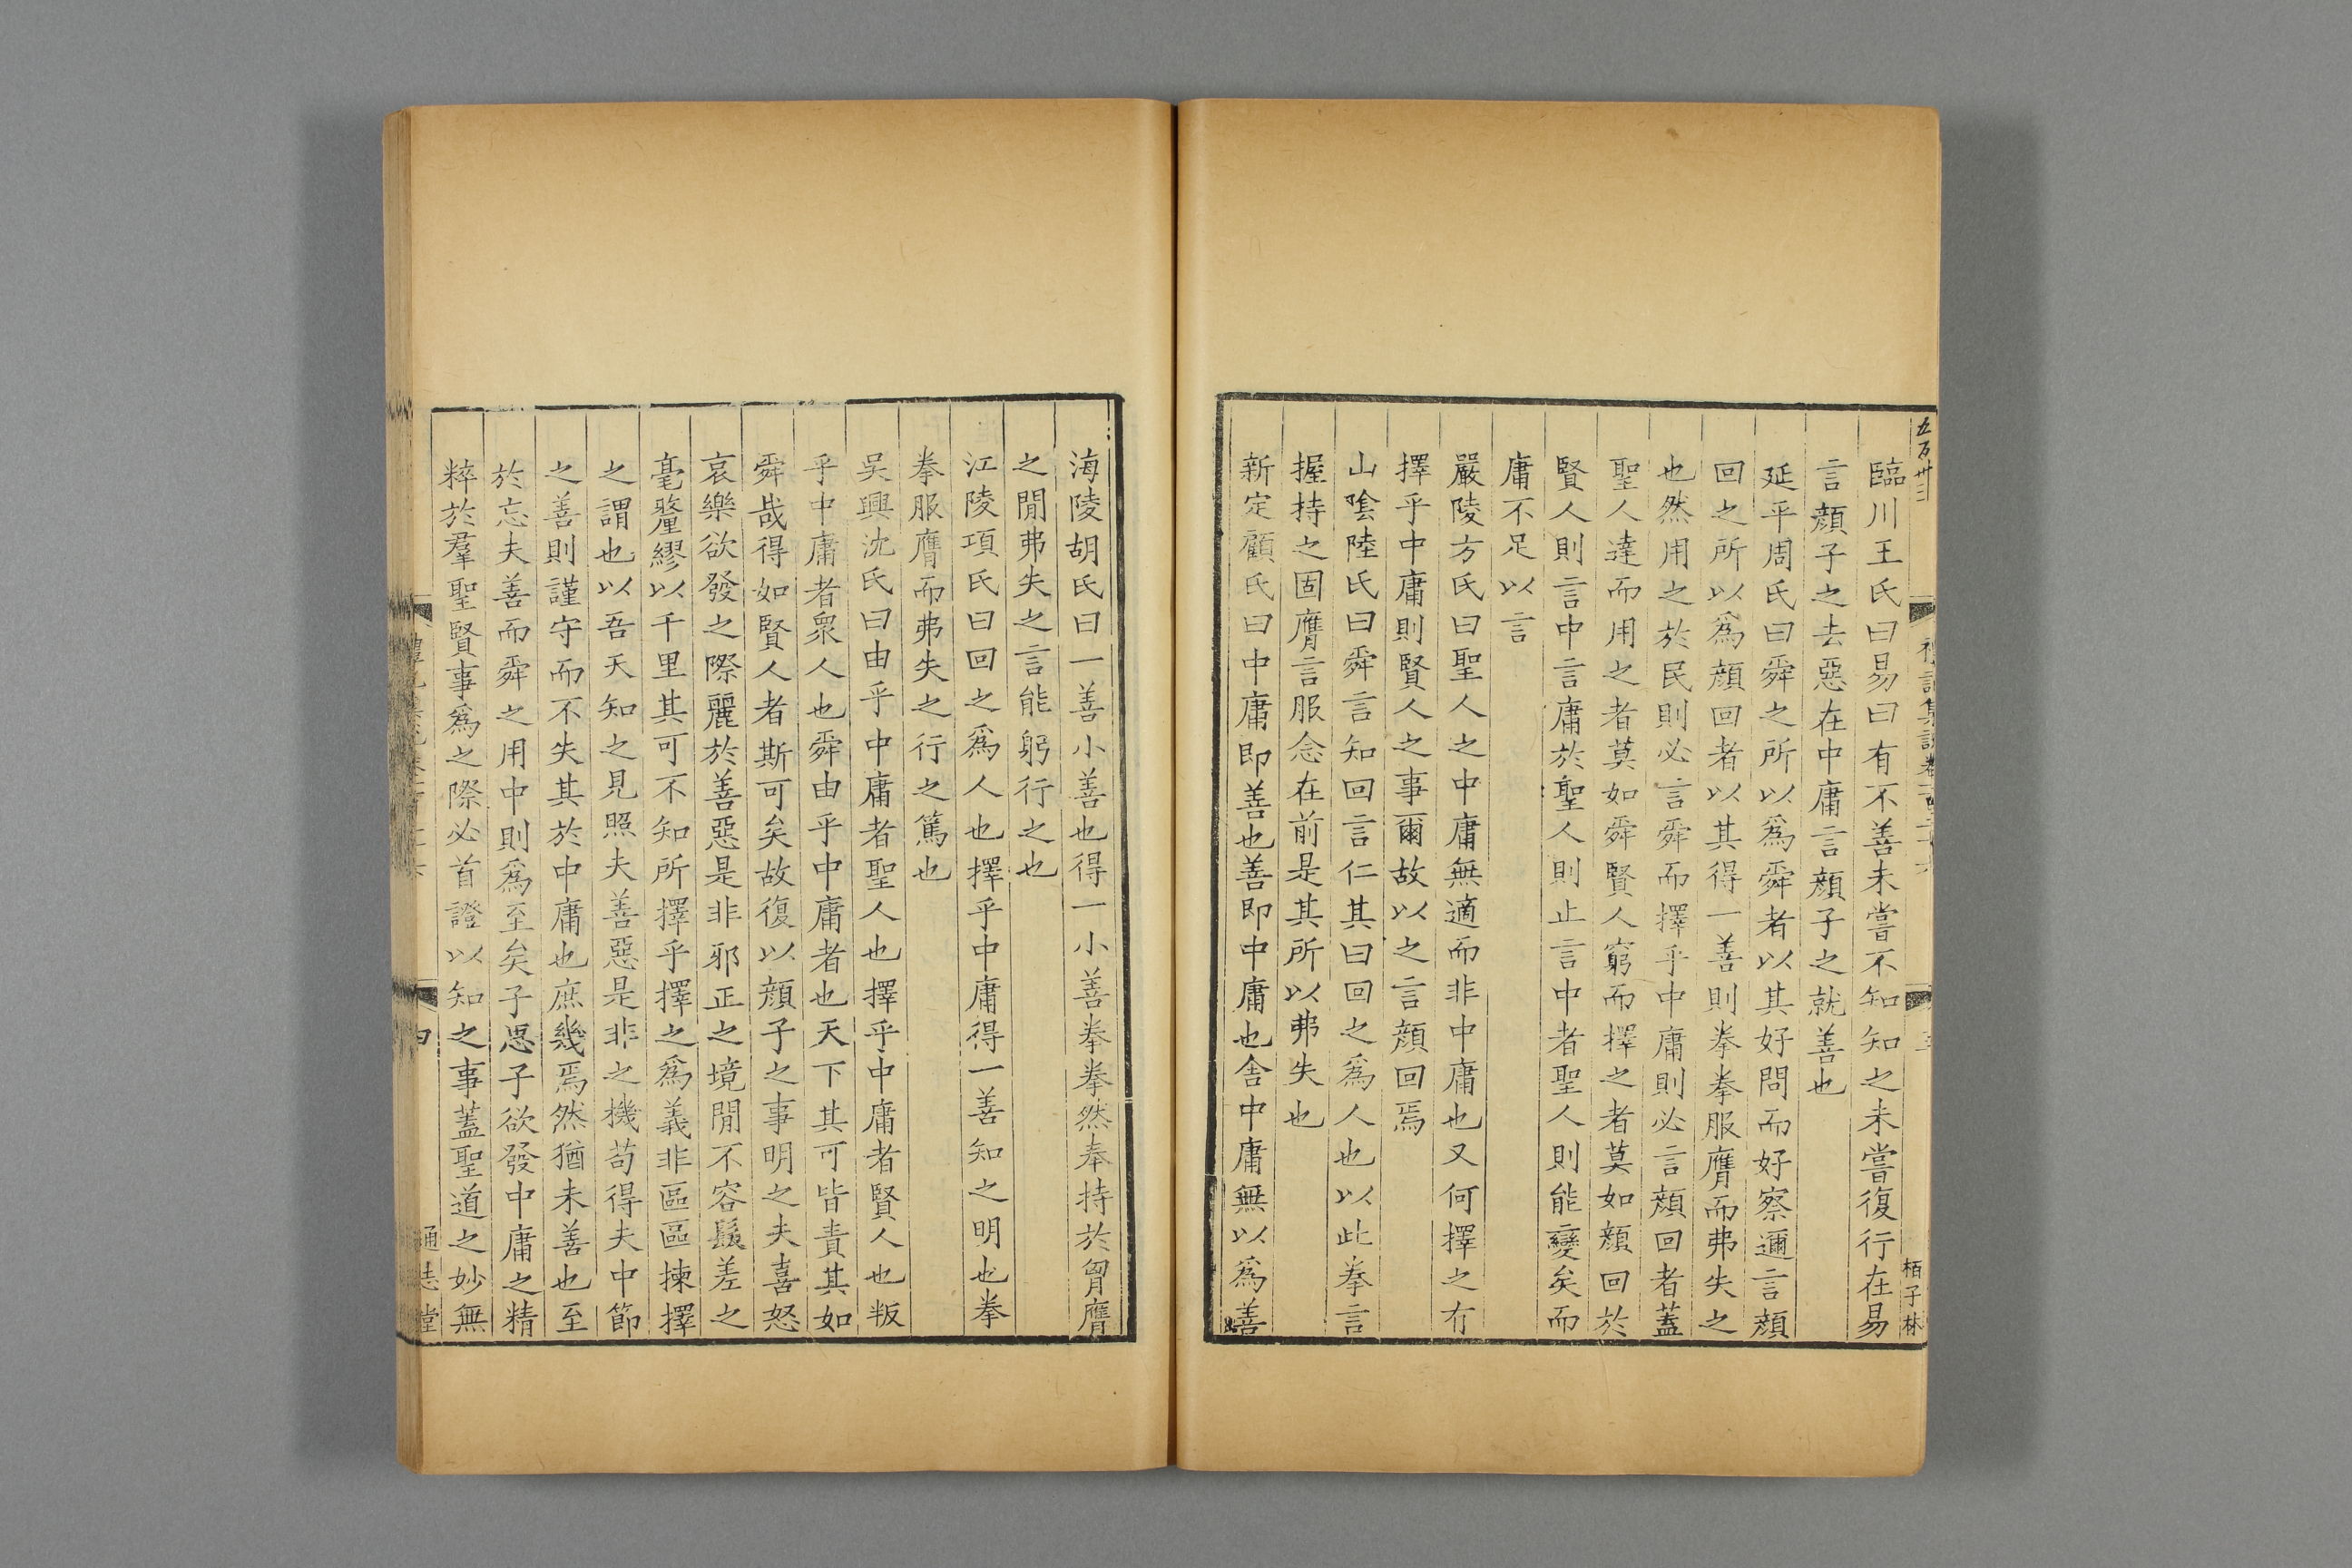 五百卅三
栢子林
臨川王氏曰易曰有不善未嘗不知知之未嘗復行在易
言顔子之去惡在中庸言顔子之就善也
延平周氏曰舜之所以爲舜者以其好問而好察邇言顔
回之所以爲顔回者以其得一善則拳拳服膺而弗失之
也然用之於民則必言舜而擇乎中庸則必言顔回者蓋
聖人達而用之者莫如舜賢人窮而擇之者莫如顔回於
賢人則言中言庸於聖人則止言中者聖人則能變矣而
庸不足以言
嚴陵方氏曰聖人之中庸無適而非中庸也又何擇之有
擇乎中庸則賢人之事爾故以之言顔回焉
山陰陸氏曰舜言知回言仁其曰回之爲人也以此拳言
握持之固膺言服念在前是其所以弗失也
新定顧氏曰中庸即善也善即中庸也舍中庸無以爲善
海陵胡氏曰一善小善也得一小善拳拳然奉持於胷膺
之閒弗失之言能躬行之也
江陵項氏曰回之爲人也擇乎中庸得一善知之明也拳
拳服膺而弗失之行之篤也
吳興沈氏曰由乎中庸者聖人也擇乎中庸者賢人也叛
乎中庸者衆人也舜由乎中庸者也天下其可皆責其如
舜哉得如賢人者斯可矣故復以顔子之事明之夫喜怒
哀樂欲發之際麗於善惡是非邪正之境閒不容髮差之
毫釐繆以千里其可不知所擇乎擇之爲義非區區揀擇
之謂也以吾天知之見照夫善惡是非之機苟得夫中節
之善則謹守而不失其於中庸也庶幾焉然猶未善也至
於忘夫善而舜之用中則爲至矣子思子欲發中庸之精
粹於羣聖賢事爲之際必首證以知之事蓋聖道之妙無
四
通志堂